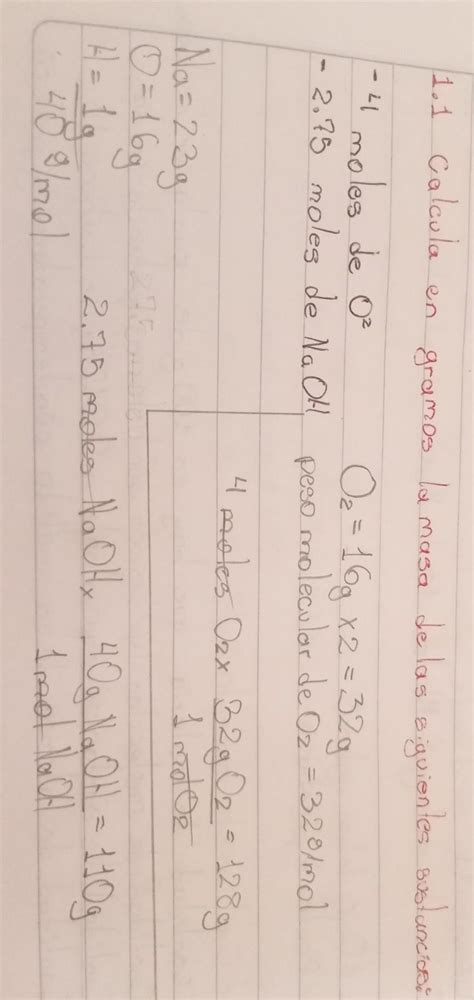 1.1 Calcula en gramos la masa de las siguientes sustancias:
- 4 moles de O²
- 2.75 moles de NaOH
O₂ = 16g x 2 = 32g
peso molecular de O₂ = 32g/mol
4 moles O₂ x 32g O₂ = 128g
1 mol O₂
Na = 23g
O = 16g
H = 1g
40g/mol
2.75 moles NaOH x 40g NaOH = 110g
1 mol NaOH